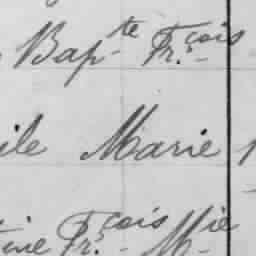 Bapte Frçois
ile Marie
ine Frçois Mie